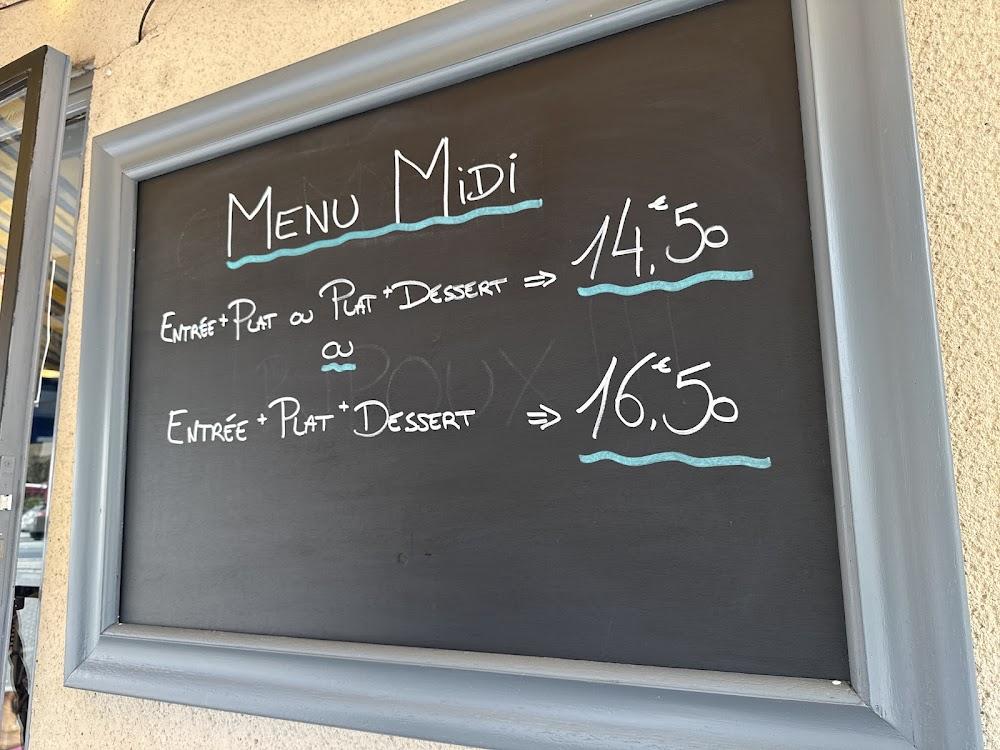 MENU MiDi
ENTRÉE + PLAT OU PLAT + DESSERT ⇒ 14,€50
OU
ENTRÉE + PLAT + DESSERT ⇒ 16,€50